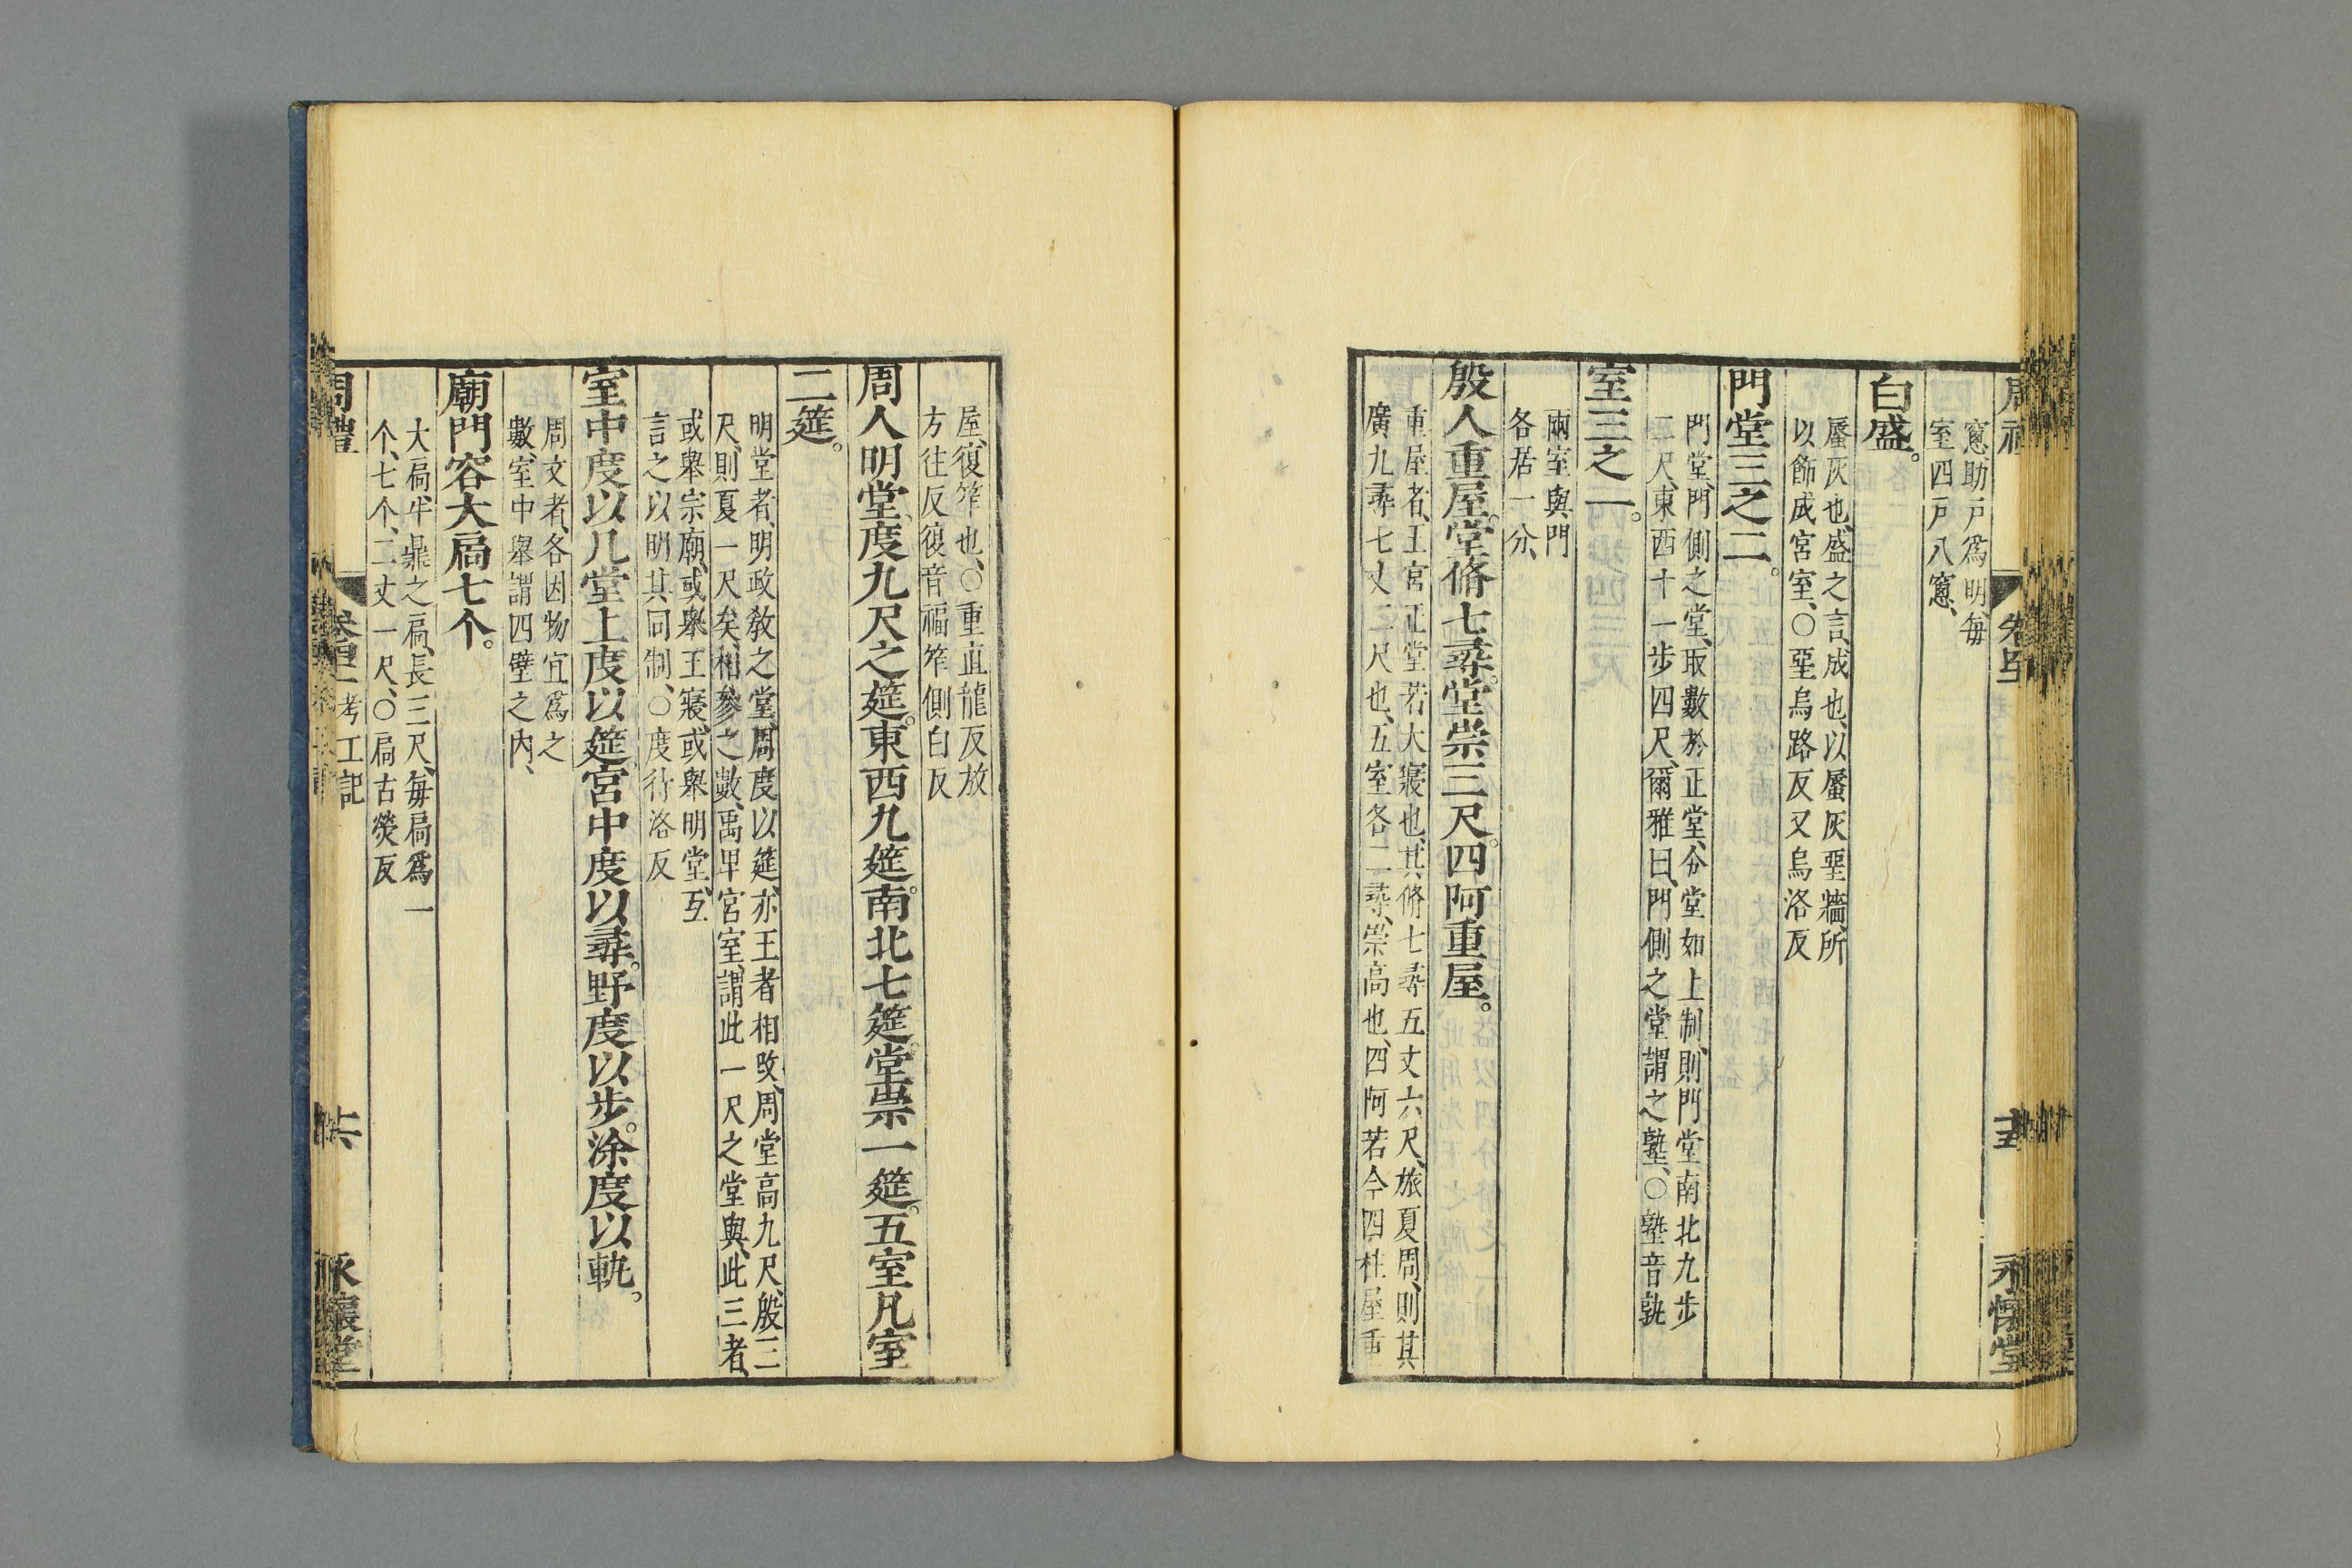 窻助戸爲明毎
室四戸八窻、
白盛。
蜃灰也、盛之言、成也、以蜃灰堊牆、所
以飾成宮室、〇堊烏路反又烏洛反
門堂三之二。
門堂、門側之堂、取數於正堂、分堂如上制、則門堂南北九步
二尺、東西十一步四尺、爾雅曰、門側之堂謂之塾、〇塾音孰
室三之一。
兩室與門
各居一分、
殷人重屋。堂脩七尋。堂崇三尺。四阿重屋。
重屋者、王宮正堂若大寢也、其脩七尋五丈六尺、放夏周、則其
廣九尋七丈二尺也、五室各二尋、崇高也、四阿若今四柱屋重
屋、復笮也、〇重直龍反放
方往反復音福笮側白反
周人明堂、度九尺之筵。東西九筵。南北七筵。堂崇一筵。五室凡室
二筵。
明堂者、明政教之堂、周度以筵、亦王者相改、周堂高九尺、殷三
尺、則夏一尺矣、相參之數、禹卑宮室、謂此一尺之堂與、此三者、
或舉宗廟、或舉王寢、或舉明堂、互
言之以明其同制、〇度待洛反
室中度以几。堂上度以筵。宮中度以尋。野度以步。涂度以軌。
周文者、各因物宜爲之
數、室中舉謂四壁之內、
廟門容大扃七个。
大扃牛鼎之扃、長三尺、毎扃爲一
个、七个、二丈一尺、〇扃古熒反
周禮 考工記 永懷堂